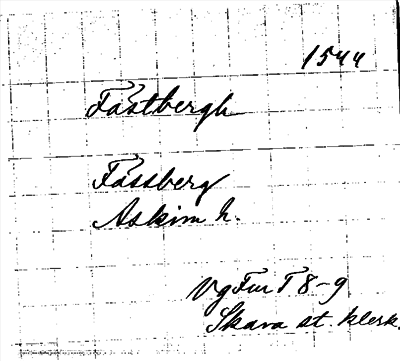 1544
Fästbergh
Fässberg
Askim h.
Vg Fur T 8-9
Skara st. klerk.